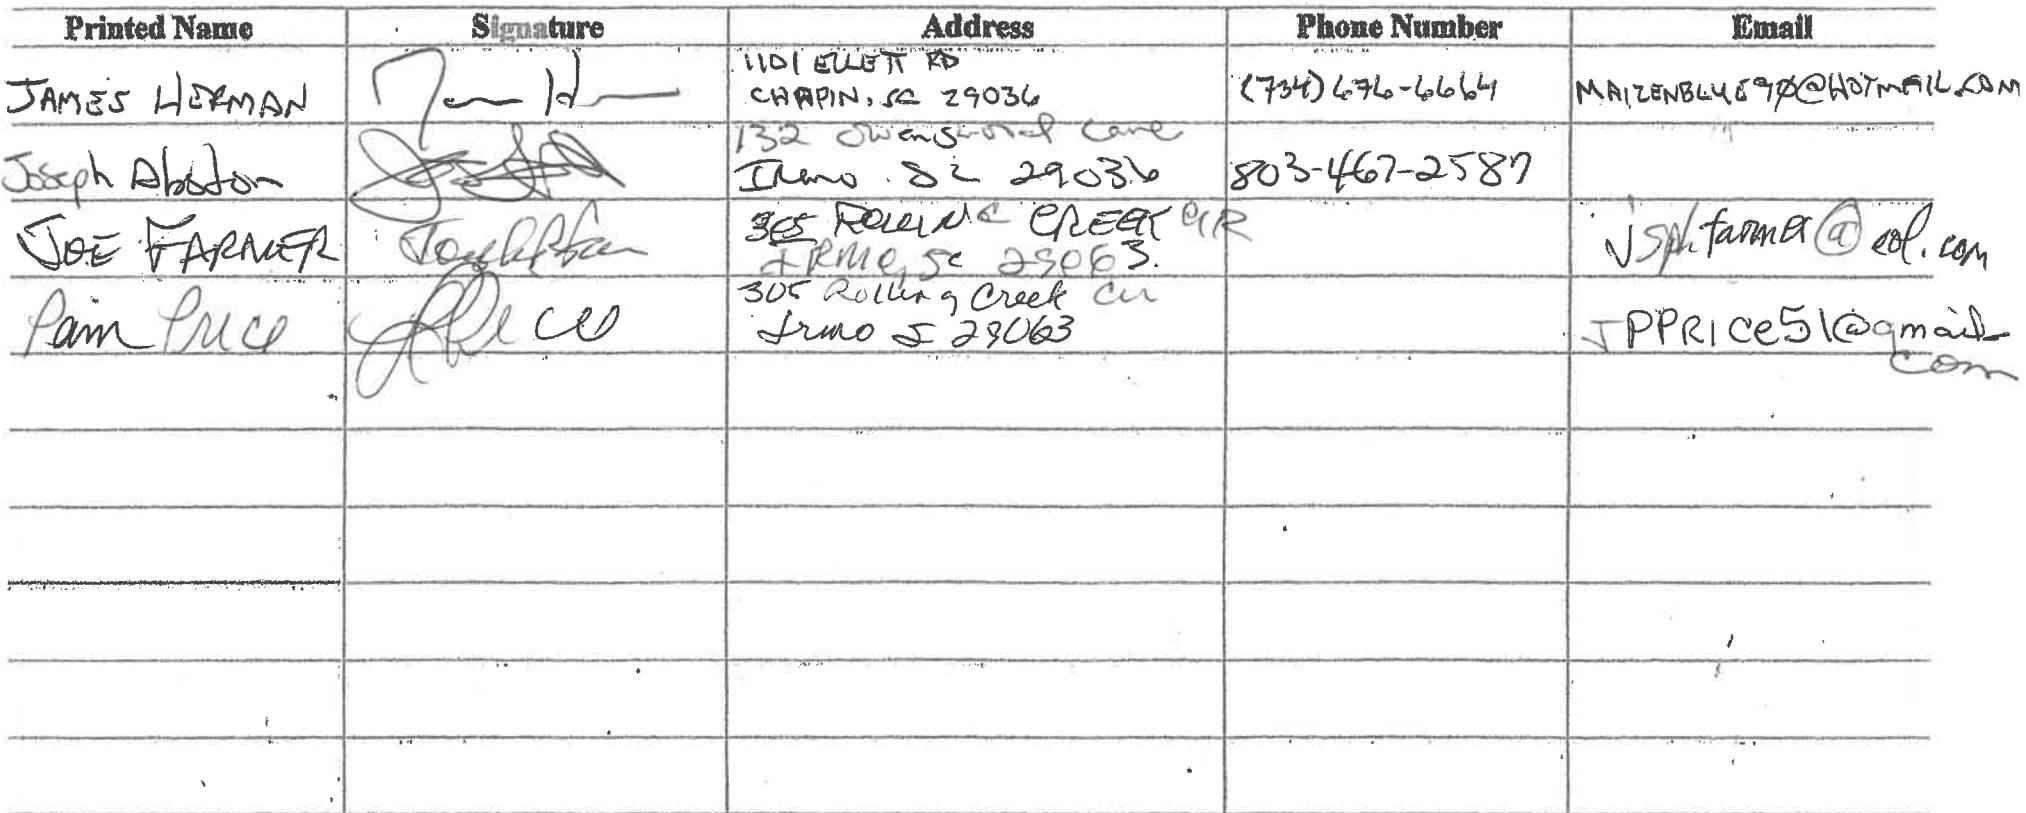 Printed Name Signature Address Phone Number Email
JAMES HERMAN 1101 ELLETT RD
CHAPIN, SC 29036 (734) 676-6664 MAIZENBLUE90@HOTMAIL.COM
Joseph Abston 132 Lane
Irmo SC 29036 803-467-2587
JOE FARMER 305 ROLLING CREEK CIR
IRMO, SC 29063. jsphfarmer@aol.com
Pam Price 305 Rolling Creek Cir
Irmo S 29063 JPPRICe51@gmail
com